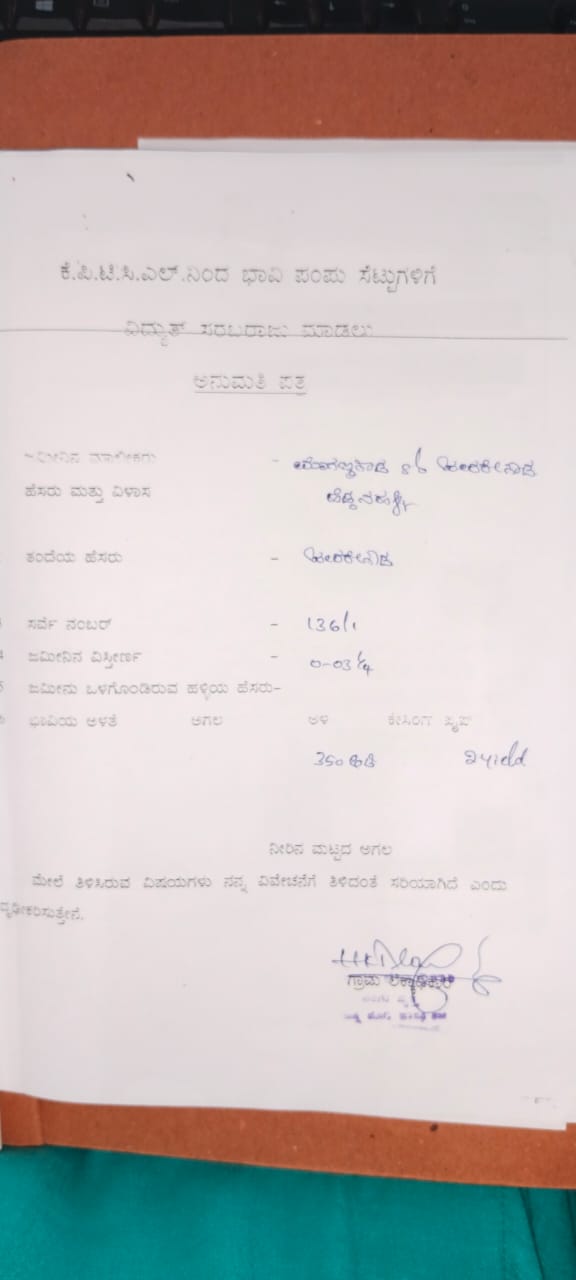 ಕೆ.ಪಿ.ಟಿ.ಸಿ.ಎಲ್.ನಿಂದ ಭಾವಿ ಪಂಪು ಸೆಟ್ಟುಗಳಿಗೆ
ವಿದ್ಯುತ್ ಸರಬರಾಜು ಮಾಡಲು
ಅನುಮತಿ ಪತ್ರ
ಮಾಲೀಕರು -
ಹೆಸರು ಮತ್ತು ವಿಳಾಸ
ತಂದೆಯ ಹೆಸರು -
ಸರ್ವೆ ನಂಬರ್ - 136/1
4 ಜಮೀನಿನ ವಿಸ್ತೀರ್ಣ - 0-03 1/4
ಜಮೀನು ಒಳಗೊಂಡಿರುವ ಹಳ್ಳಿಯ ಹೆಸರು-
ಭಾವಿಯ ಅಳತೆ ಅಗಲ ಆಳ ಕೇಸಿಂಗ್ ಪೈಪ್
350 ಅಡಿ yield
ನೀರಿನ ಮಟ್ಟದ ಅಗಲ
ಮೇಲೆ ತಿಳಿಸಿರುವ ವಿಷಯಗಳು ನನ್ನ ವಿವೇಚನೆಗೆ ತಿಳಿದಂತೆ ಸರಿಯಾಗಿದೆ ಎಂದು
ದೃಢೀಕರಿಸುತ್ತೇನೆ.
ಗ್ರಾಮ ಲೆಕ್ಕಾಧಿಕಾರಿ